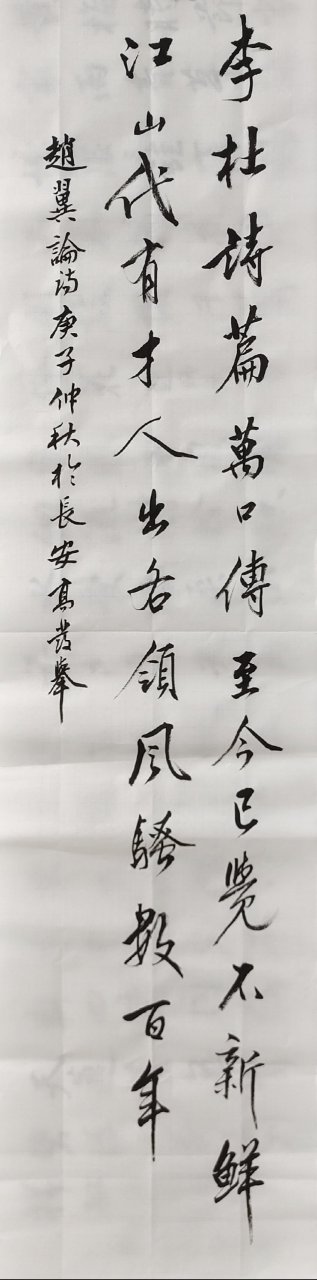 李杜詩篇萬口傳至今已覺不新鮮
江山代有才人出各領风騷數百年
趙翼論诗庚子仲秋於長安高發舉